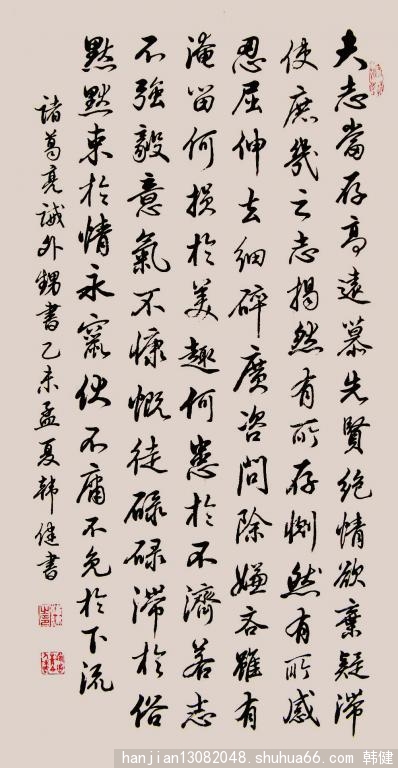 夫志當存高遠慕先賢絶情欲棄疑滯
使庶幾之志揭然有所存惻然有所感
忍屈伸去細碎廣咨問除嫌吝雖有
淹留何損於美趣何患於不濟若志
不強毅意氣不慷慨徒碌碌滯於俗
默默束於情永竄伏不庸不免於下流
諸葛亮誡外甥書乙未孟夏韓健書
hanjian13082048.shuhua66.com 韩健